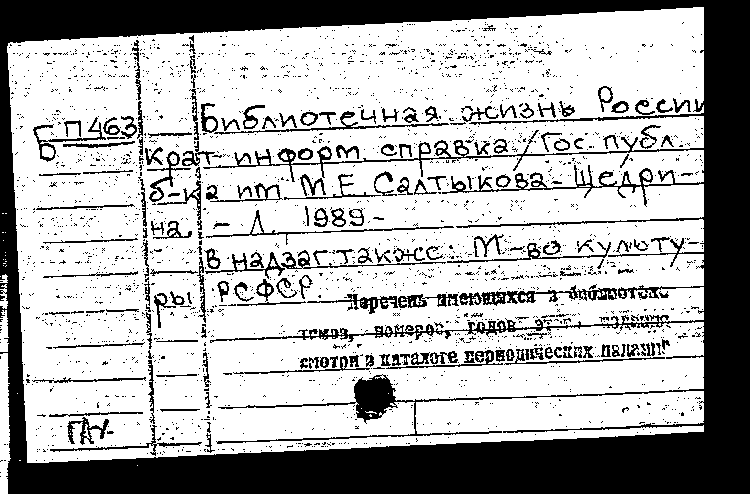 Б П463
Библиотечная жизнь России
Крат. информ. справка / Гос. публ.
б-ка им. М.Е. Салтыкова-Щедри-
на. - Л. 1989-
В надзаг. также: М-во культу-
ры РСФСР.
Перечень имеющихся в библиотеке
томов, номеров, годов
смотри в каталоге периодических изданий